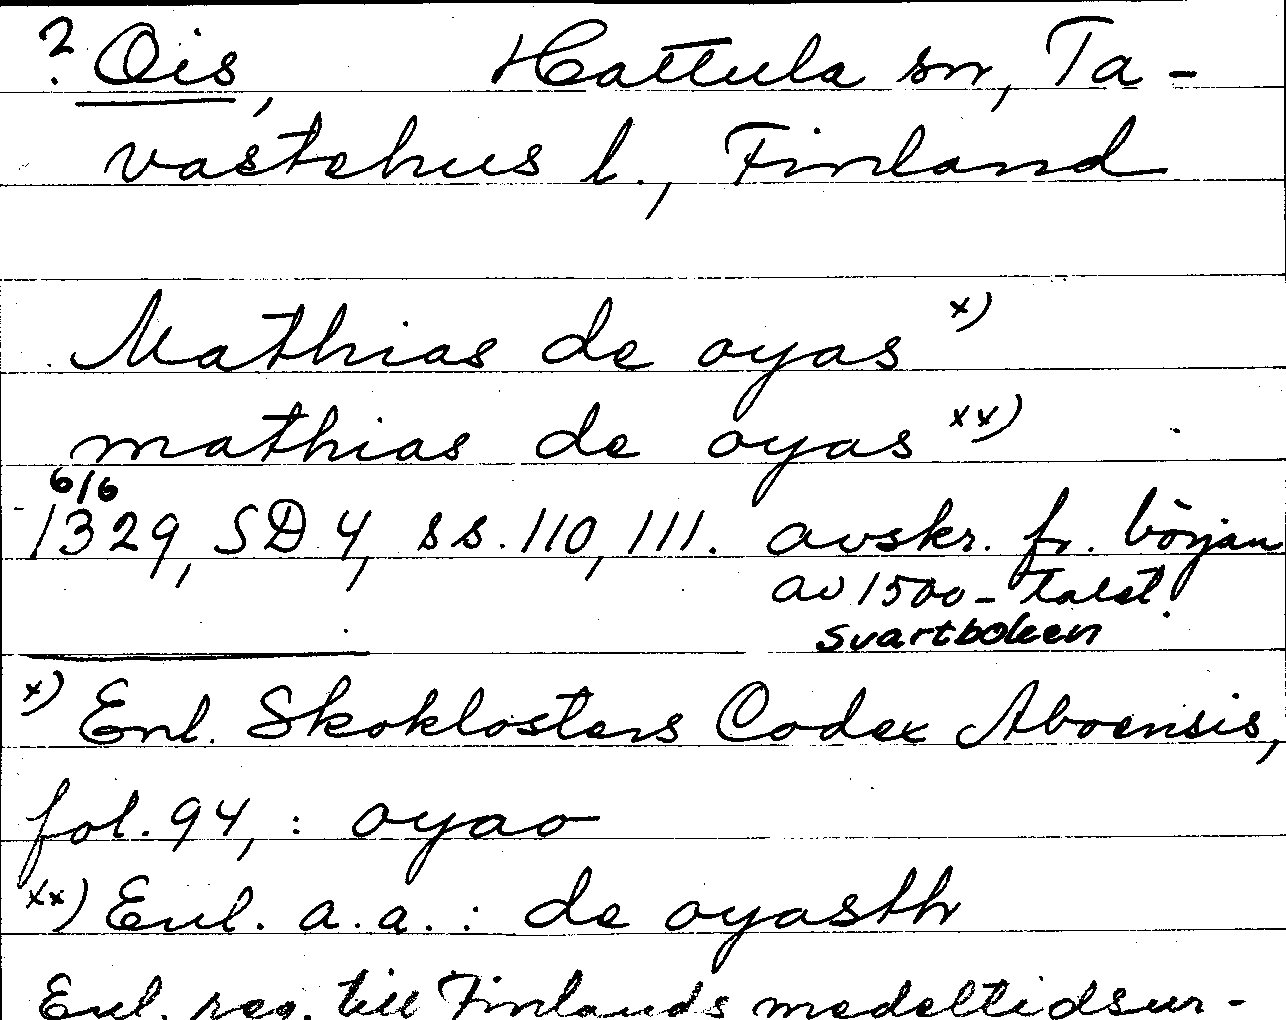 ? Ois, Hattula sn, Ta-
vastehus l., Finland
Mathias de oyas x)
mathias de oyas xx)
6/6
1329, SD 4, ss. 110, 111. avskr. fr. början
av 1500-talet.
svartboken
x) Enl. Skoklosters Codex Aboensis,
fol. 94, : oyao
xx) Enl. a.a. : de oyasth
Enl. reg. till Finlands medeltidsur-